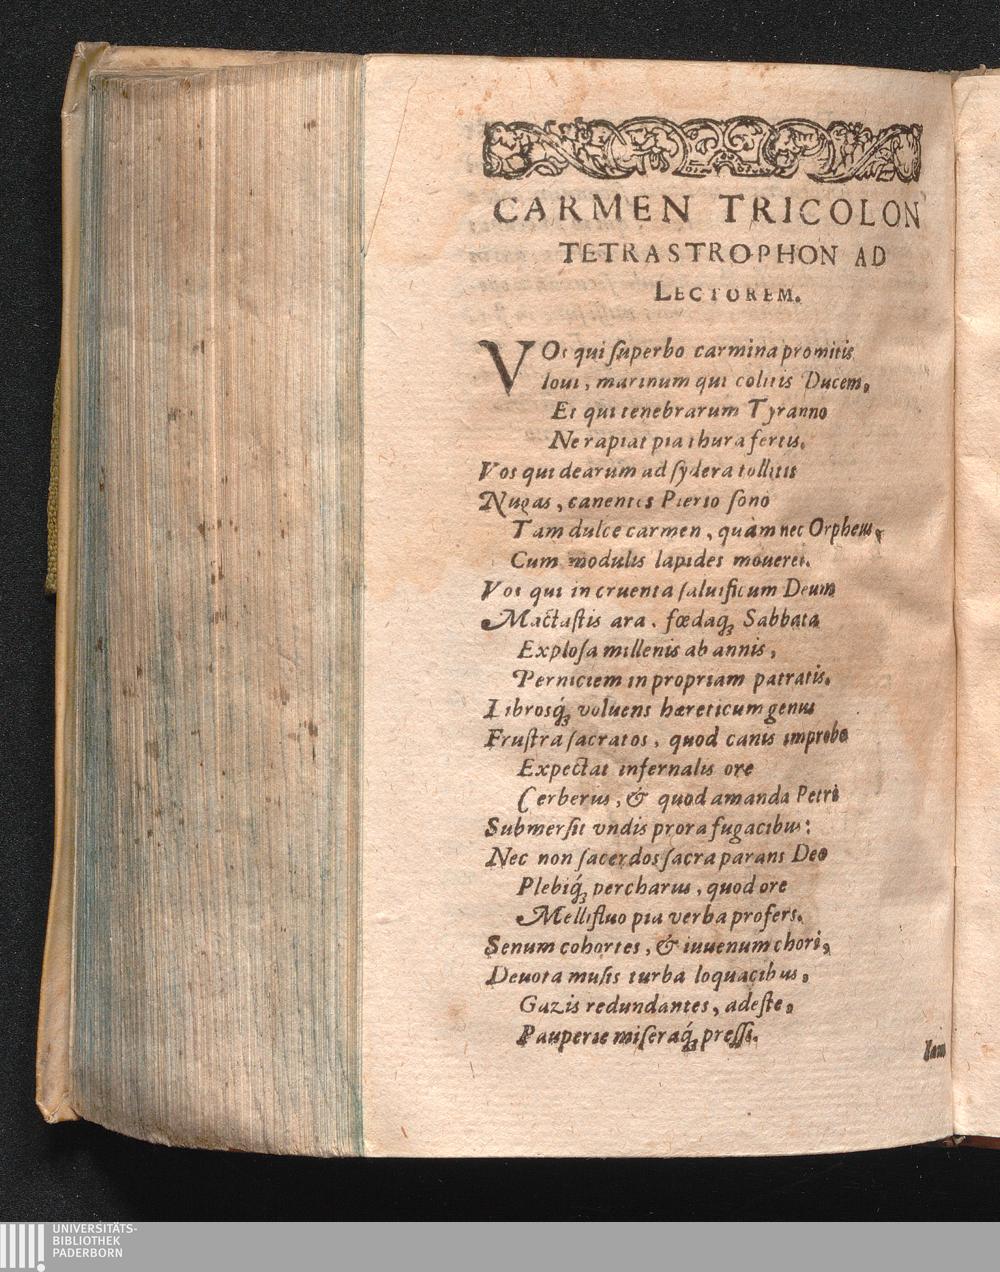 CARMEN TRICOLON
TETRASTROPHON AD
LECTOREM.
VOs qui ſuperbo carmina promitis
Ioui, marinum qui colitis Ducem,
Et qui tenebrarum Tyranno
Ne rapiat pia thura fertis.
Vos qui dearum ad ſydera tollitis
Nugas, canentes Pierio ſono
Tam dulce carmen, quàm nec Orpheus,
Cum modulis lapides moueret.
Vos qui in cruenta ſaluificum Deum
Mactaſtis ara, fœdaq́; Sabbata
Exploſa millenis ab annis,
Perniciem in propriam patratis.
Librosq́; voluens hæreticum genus
Fruſtra ſacratos, quod canis improbo
Expectat infernalis ore
Cerberius, & quod amanda Petri
Submerſit vndis prora fugacibus:
Nec non ſacerdos ſacra parans Deo
Plebiq́; percharus, quod ore
Mellifluo pia verba profers.
Senum cohortes, & iuuenum chori,
Deuota muſis turba loquacibus,
Gazis redundantes, adeſte,
Pauperie miſeraq́; preſſi.
Iam
UNIVERSITÄTS-
BIBLIOTHEK
PADERBORN